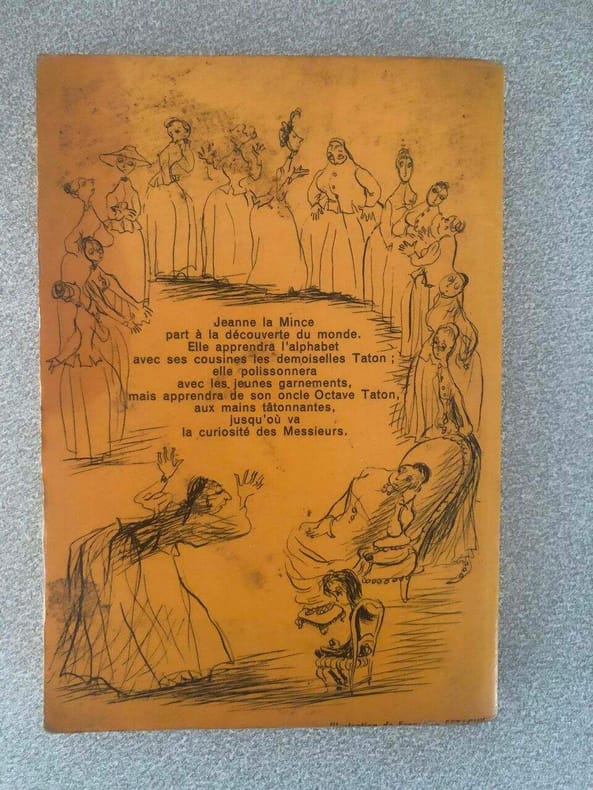 Jeanne la Mince
part à la découverte du monde.
Elle apprendra l'alphabet
avec ses cousines les demoiselles Taton ;
elle polissonnera
avec les jeunes garnements,
mais apprendra de son oncle Octave Taton,
aux mains tâtonnantes,
jusqu'où va
la curiosité des Messieurs.
Illustration de